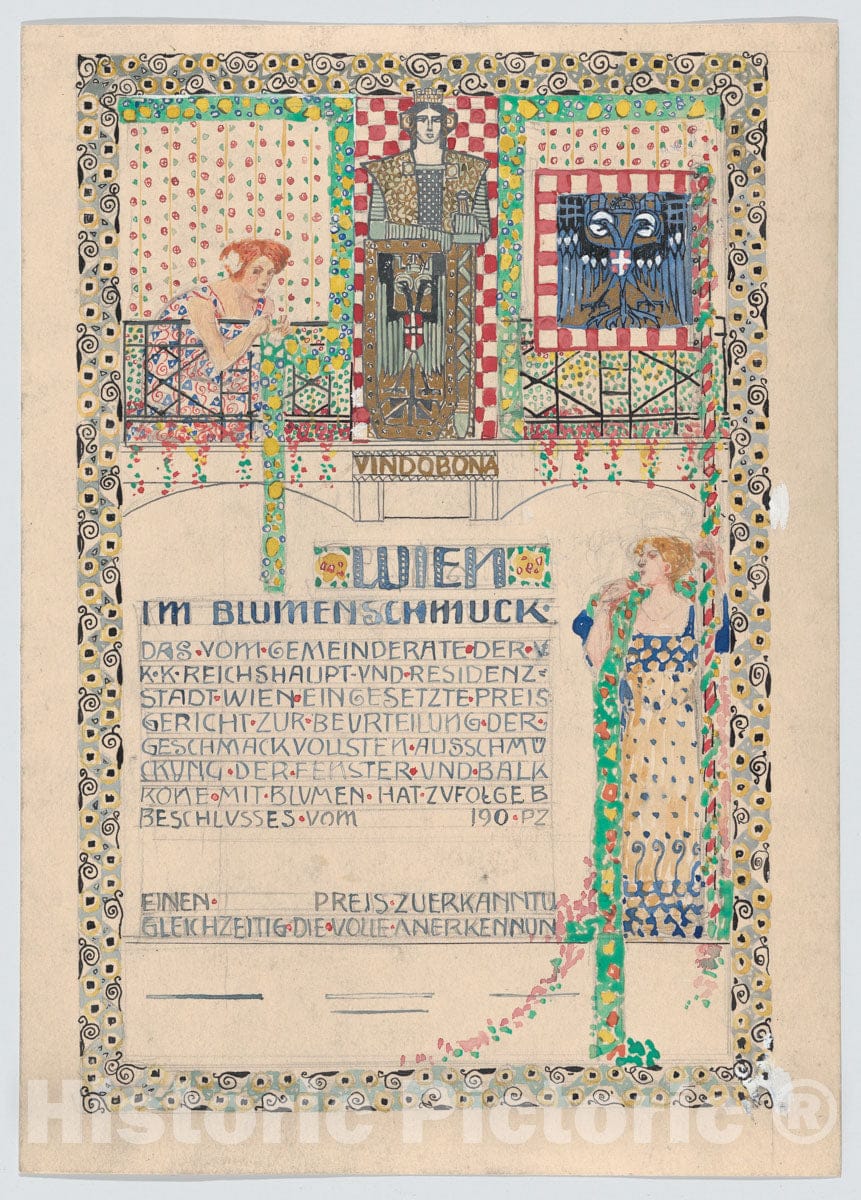 VINDOBONA
WIEN
IM BLUMENSCHMUCK·
DAS·VOM·GEMEINDERATE·DER·V
K·K·REICHSHAUPT·VND·RESIDENZ=
STADT·WIEN·EINGESETZTE·PREIS
GERICHT·ZUR·BEURTEILUNG·DER·
GESCHMACKVOLLSTEN·AUSSCHMÜ
CKUNG·DER·FENSTER·UND·BALK
KONE·MIT·BLUMEN·HAT·ZVFOLGE B
BESCHLUSSES·VOM 190·PZ
EINEN· PREIS·ZUERKANNTU
GLEICHZEITIG·DIE·VOLLE·ANERKENNUN
Historic Pictoric ®